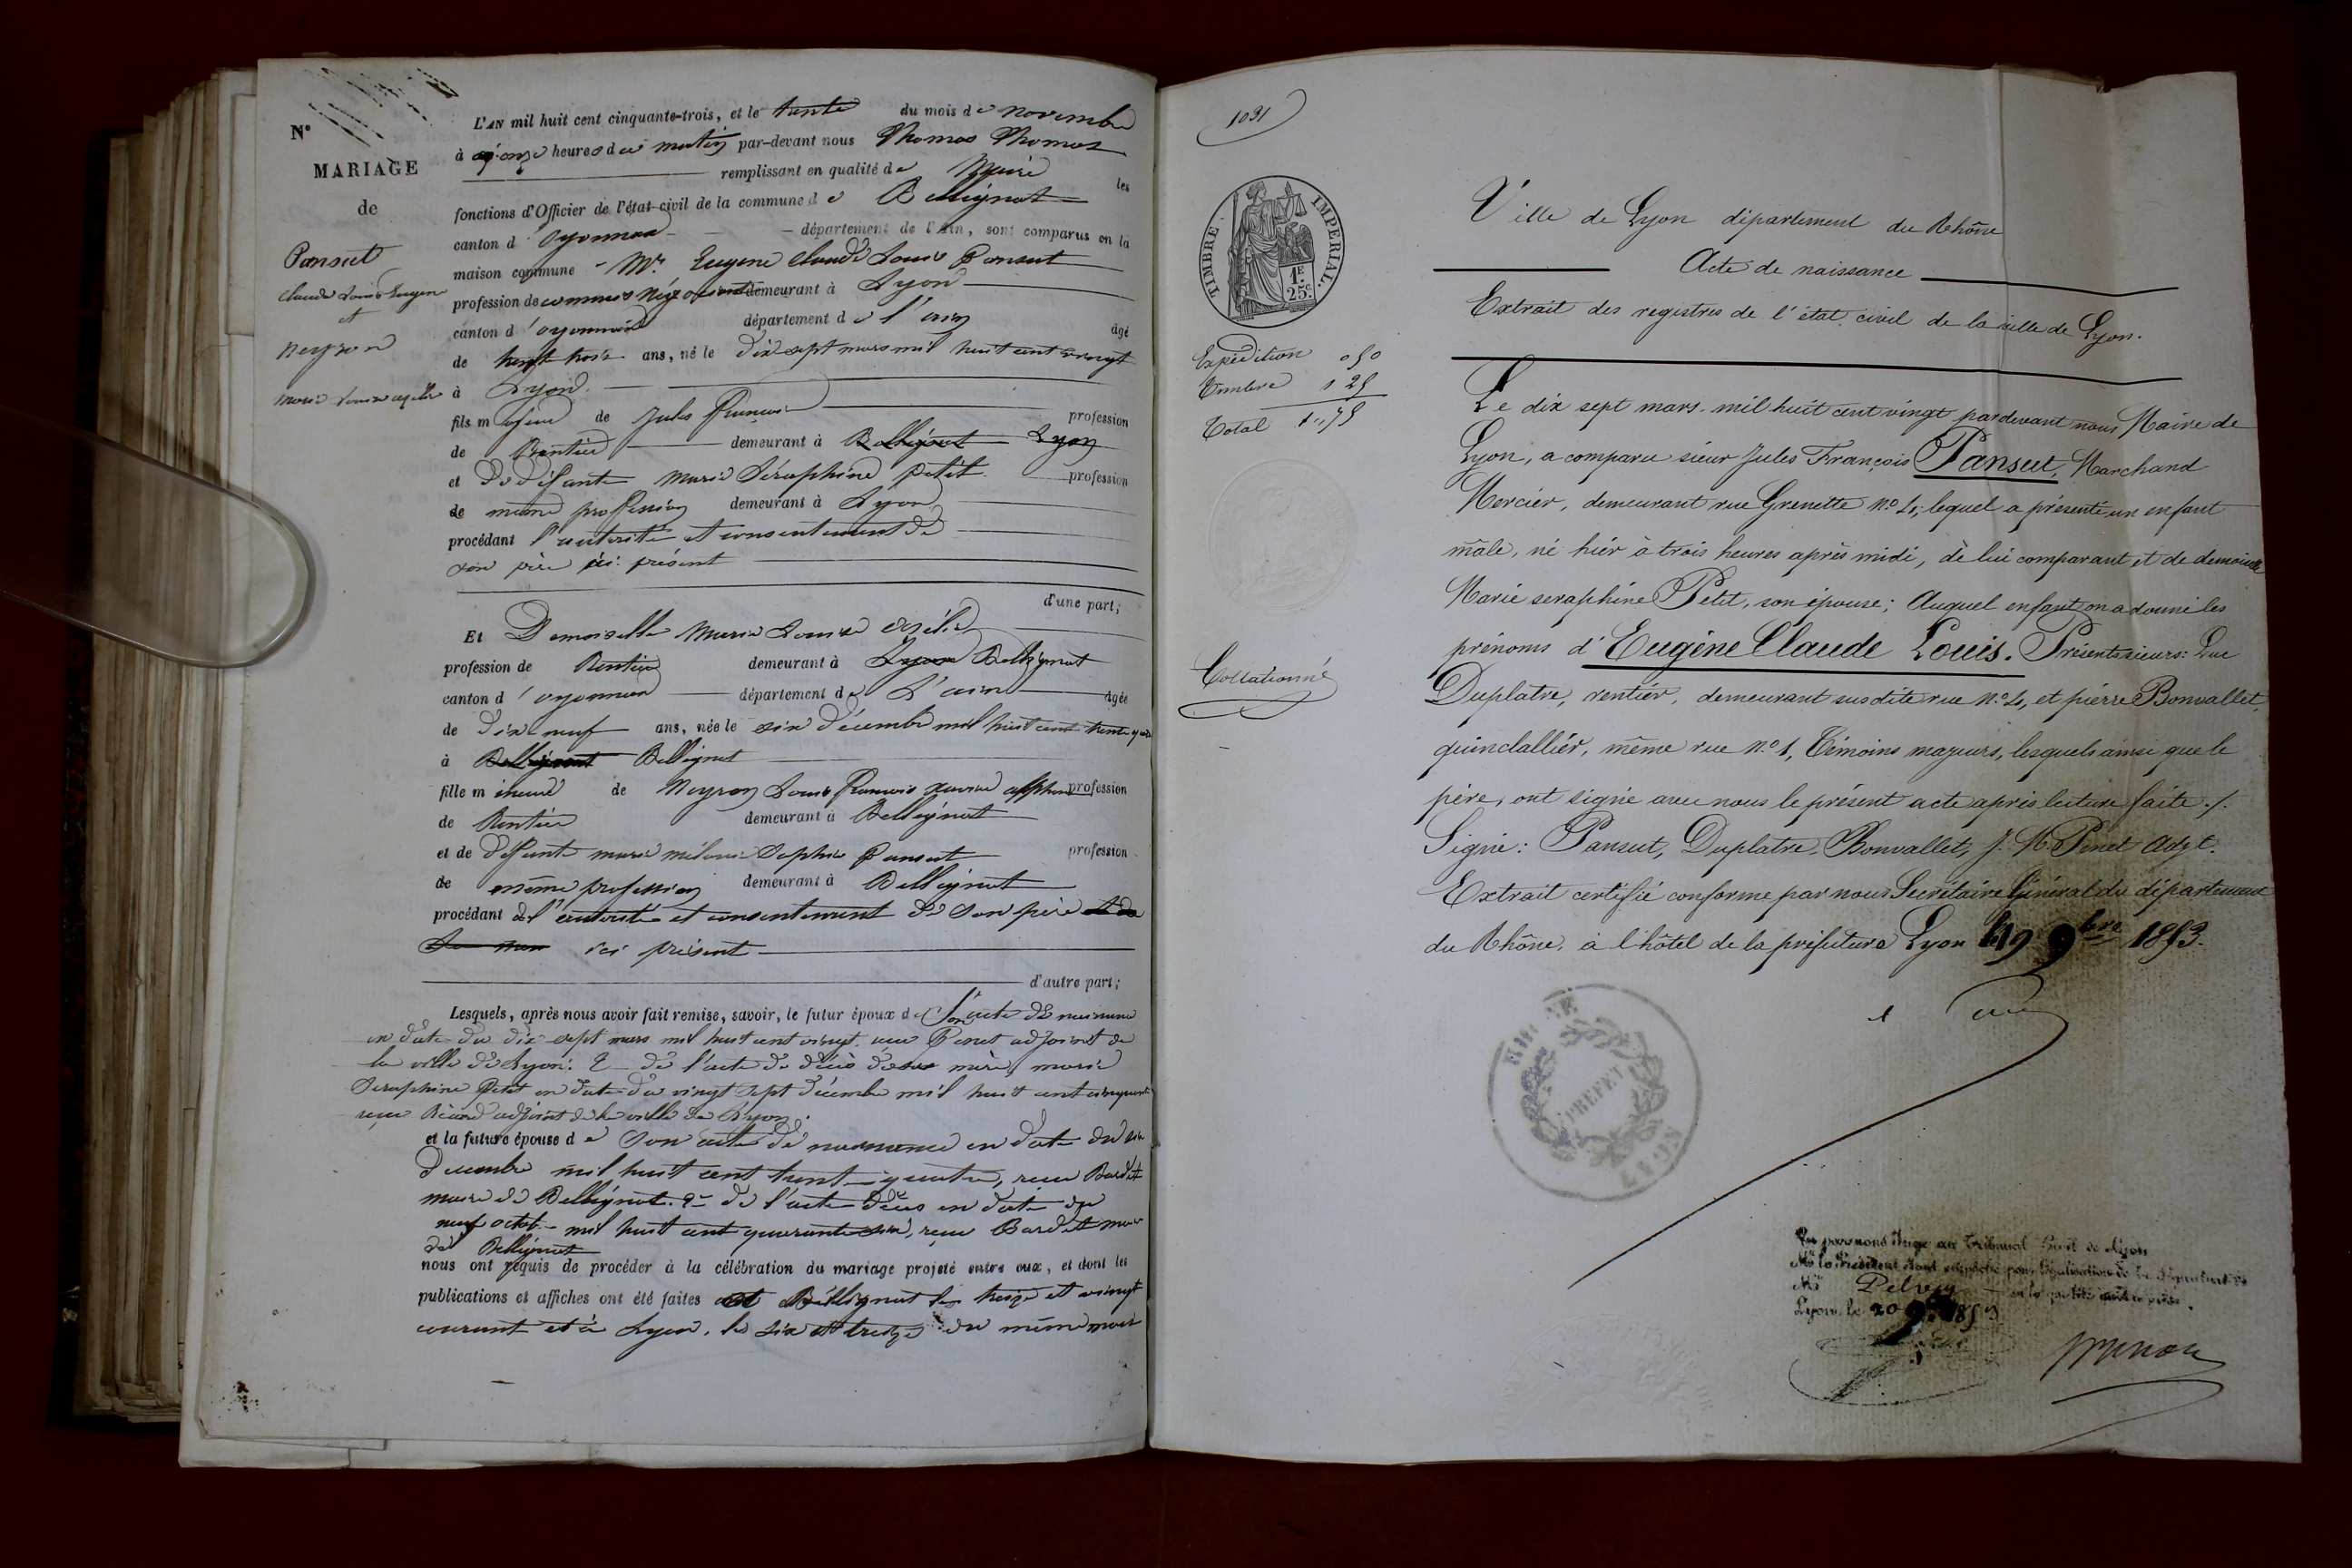 N°
MARIAGE
de
Pansut
Claude Louis Eugene
et
Neyron
Marie Louise azélie
L'AN mil huit cent cinquante-trois, et le trente du mois de novembre
à onze heures du matin par-devant nous Thomas Thomas
remplissant en qualité de Maire les
fonctions d'Officier de l'état-civil de la commune de Bellignat
canton d'oyonnax département de l'Ain, sont comparus en la
maison commune Mr. Eugene Claude Louis Pansut
profession de commis négociant demeurant à Lyon
canton d'oyonnax département de l'ain âgé
de trente trois ans, né le dix sept mars mil huit cent vingt
à Lyon
fils majeur de Jules François profession
de Rentier demeurant à Bellignat Lyon
et de défunte Marie Séraphine Petit profession
de même profession demeurant à Lyon
procédant l'autorité et consentement de
son père ici présent
d'une part;
Et Demoiselle Marie Louise Azélie
profession de Rentière demeurant à Lyon Bellignat
canton d'oyonnax département de L'ain âgée
de dix neuf ans, née le six décembre mil huit cent trente quatre
à Bellignat Bellignat
fille mineure de Neyron Louis François Xavier Alphonse profession
de Rentier demeurant à Bellignat
et de défunte marie mélanie Sophie Pansut profession
de même profession demeurant à Bellignat
procédant de l'autorité et consentement de son père et de
sa mère ici présent
d'autre part;
Lesquels, après nous avoir fait remise, savoir, le futur époux de Son acte de naissance
en date du dix sept mars mil huit cent vingt reçu Pinet adjoint de
la ville de Lyon: 2° de l'acte de décès de sa mère marie
Seraphine Petit en date du vingt sept décembre mil huit cent cinquante
reçu adjoint de la ville de Lyon.
et la future épouse de son acte de naissance en date du six
décembre mil huit cent trente-quatre, reçu Bardet
maire de Bellignat. 2° de l'acte décès en date du
neuf octobre mil huit cent quarante six, reçu Bardet maire
de Bellignat
nous ont requis de procéder à la célébration du mariage projeté entre eux, et dont les
publications et affiches ont été faites à Bellignat les treize et vingt
courant et à Lyon, les six et treize du même mois
1091
TIMBRE IMPERIAL.
1F
25c
Expédition 0 50
Timbre 1 25
Total 1.75
Collationné
Ville de Lyon département du Rhône
Acte de naissance
Extrait des registres de l'état civil de la ville de Lyon.
Le dix sept mars mil huit cent vingt pardevant nous Maire de
Lyon, a comparu sieur Jules François Pansut, Marchand
Mercier, demeurant rue Grenette n° 4, lequel a présenté un enfant
mâle, né hier à trois heures après midi, de lui comparant et de demoiselle
Marie seraphine Petit, son épouse; Auquel enfant on a donné les
prénoms d'Eugène Claude Louis. Présents sieurs: Luc
Duplatre, rentier, demeurant susdite rue n° 4, et pierre Bonvallet,
quinclallier, même rue n° 1, Témoins majeurs, lesquels ainsi que le
père, ont signé avec nous le présent acte après lecture faite ./.
Signé: Pansut, Duplatre, Bonvallet, J. M. Pinet adjt.
Extrait certifié conforme par nous Secrétaire Général du département
du Rhône, à l'hôtel de la préfecture Lyon le 19 9bre 1853.
RHÔNE
PREFET
LYON
Vu par nous Juge au Tribunal Civil de Lyon
Mr le Président étant empêché pour légalisation de la signature de
Mr Pelvey
Lyon, le 20 9bre 1853